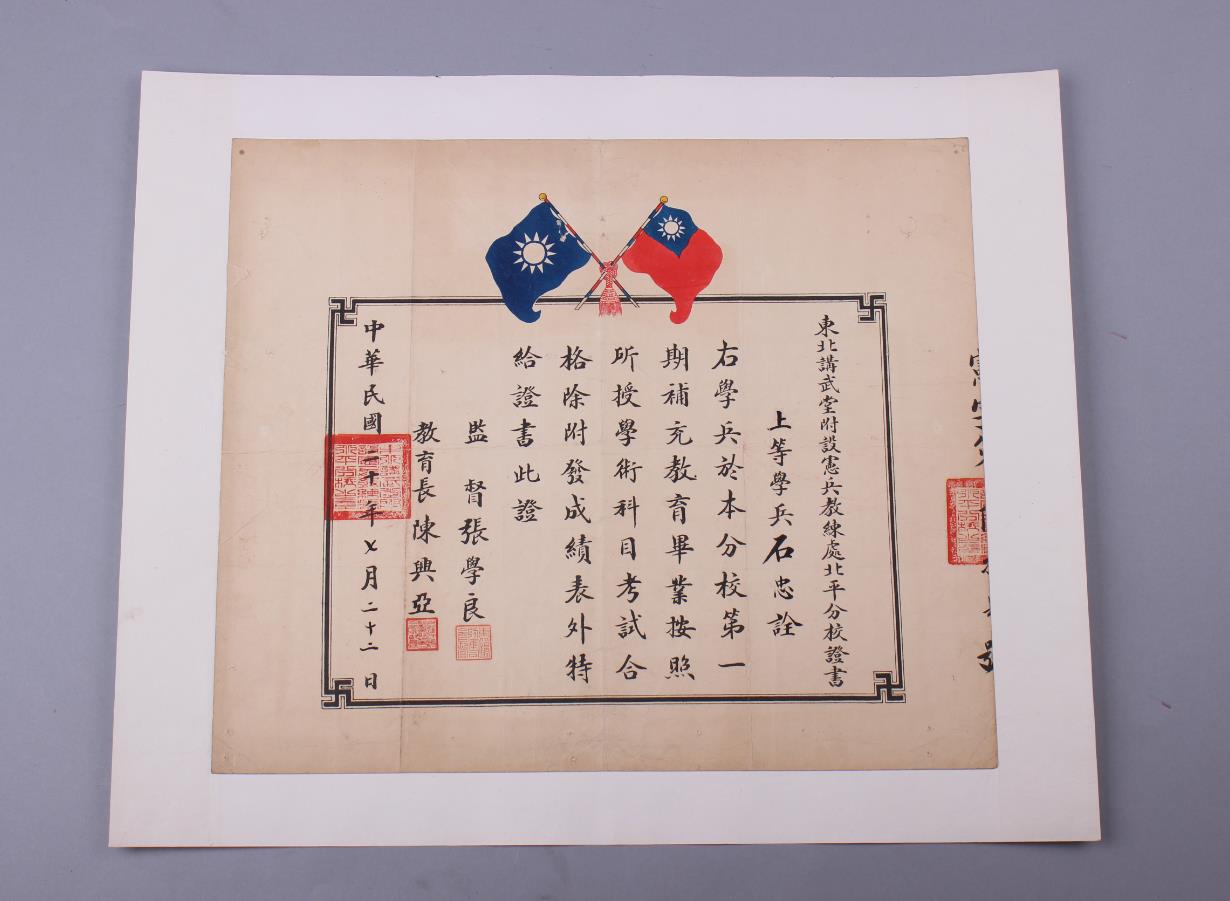 東北講武堂附設憲兵教練處北平分校證書
上等學兵石忠詮
右學兵於本分校第一
期補充教育畢業按照
所授學術科目考試合
格除附發成績表外特
給證書此證
監督張學良
教育長陳興亞
中華民國二十年七月二十二日